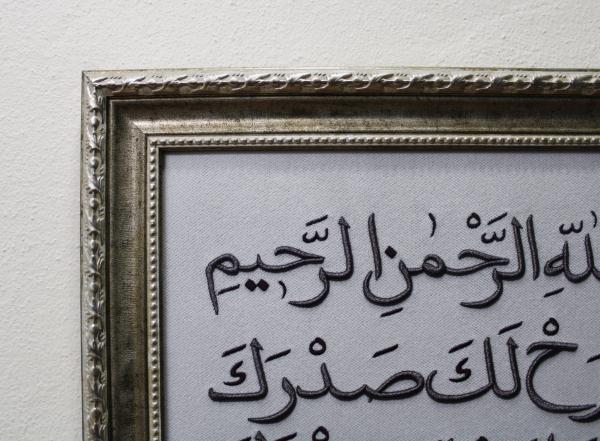 للّٰهِ الرَّحْمٰنِ الرَّحٖيمِ
رَحْ لَكَ صَدْرَكَ